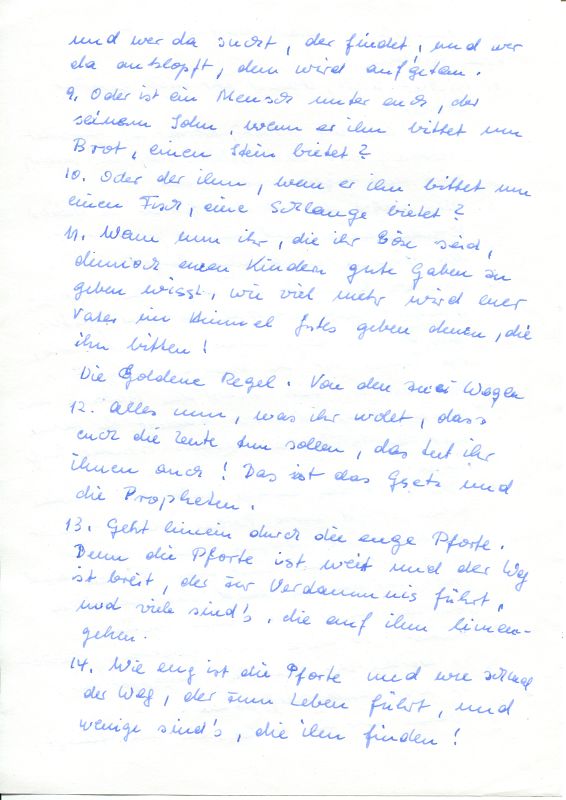 und wer da sucht, der findet, und wer
da anklopft, dem wird aufgetan.
9. Oder ist ein Mensch unter euch, der
seinem Sohn, wenn er ihn bittet um
Brot, einen Stein bietet?
10. Oder der ihm, wenn er ihn bittet um
einen Fisch, eine Schlange bietet?
11. Wenn nun ihr, die ihr böse seid,
dennoch euren Kindern gute Gaben zu
geben wisst, wie viel mehr wird euer
Vater im Himmel Gutes geben denen, die
ihn bitten!
Die Goldene Regel. Von den zwei Wegen
12. Alles nun, was ihr wollt, dass
euch die Leute tun sollen, das tut ihr
ihnen auch! Das ist das Gsetz und
die Propheten.
13. Geht hinein durch die enge Pforte.
Denn die Pforte ist weit und der Weg
ist breit, der zur Verdammnis führt,
und viele sind's, die auf ihm hinein-
gehen.
14. Wie eng ist die Pforte und wie schmal
der Weg, der zum Leben führt, und
wenige sind's, die ihn finden!